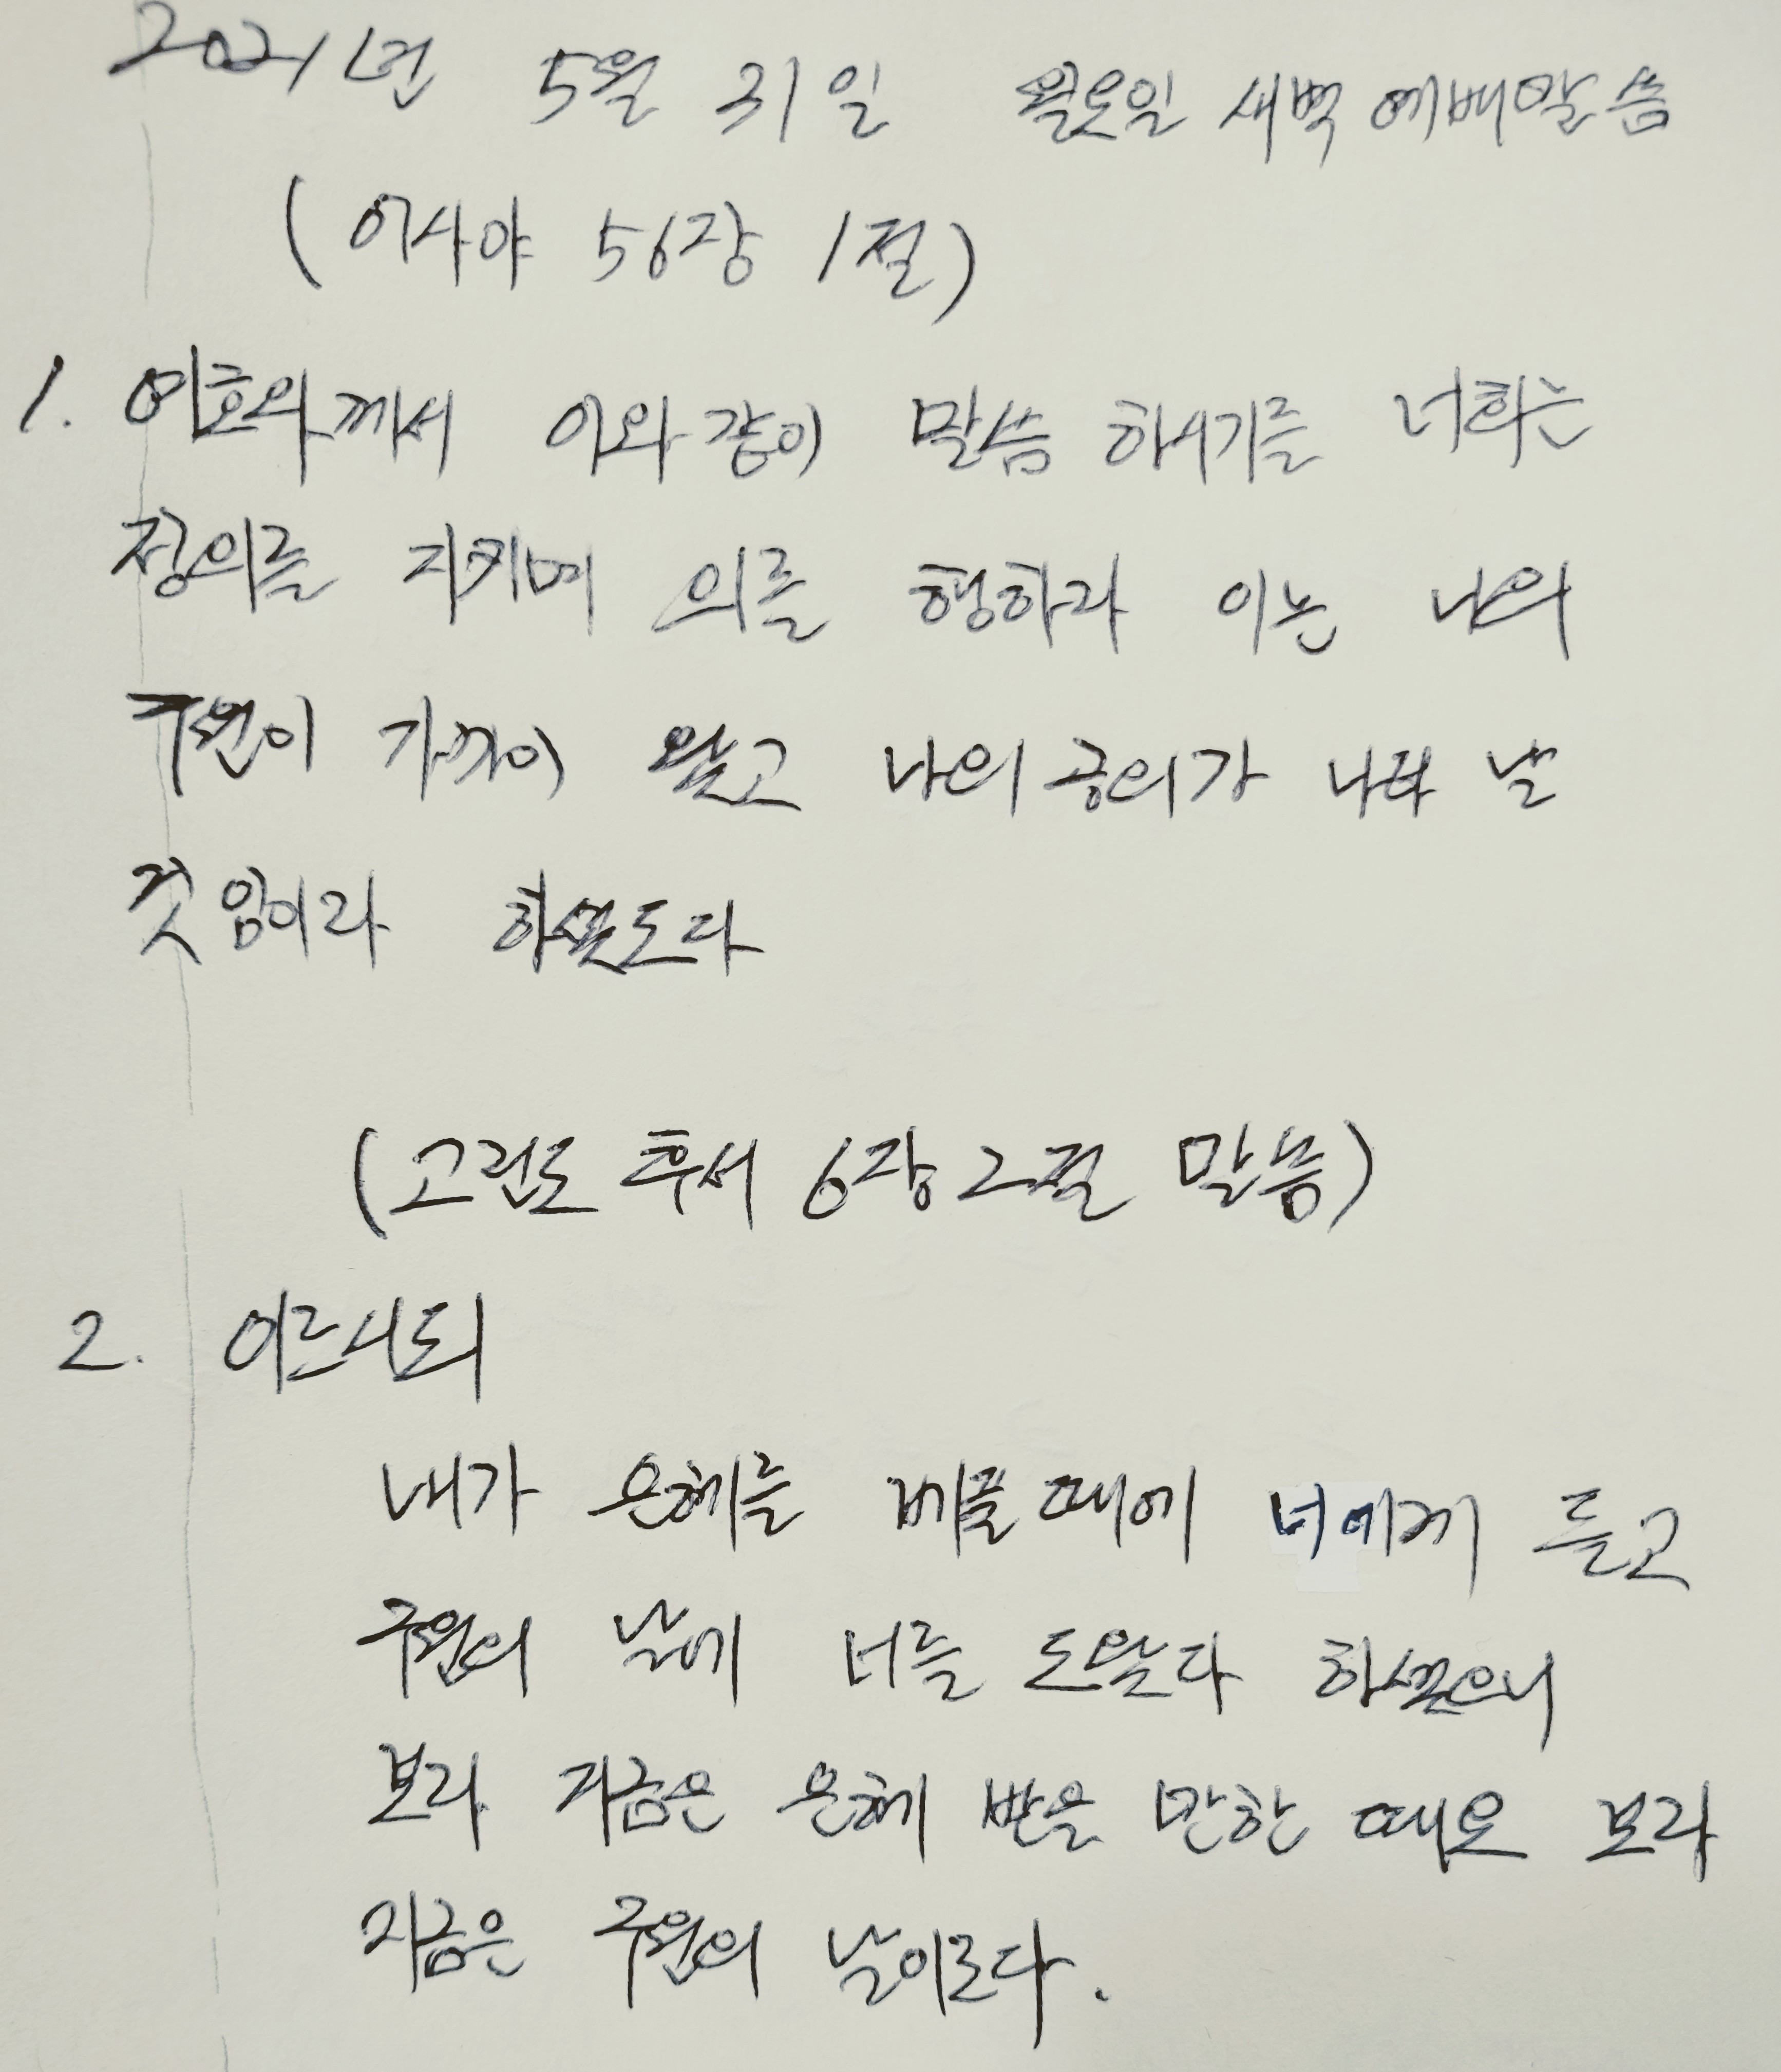 2021년 5월 31일 월요일 새벽 예배말씀
(이사야 56장 1절)
1. 여호와께서 이와 같이 말씀 하시기를 너희는
정의를 지키며 의를 행하라 이는 나의
구원이 가까이 왔고 나의 공의가 나타 날
것 임이라 하셨도다
(고린도 후서 6장 2절 말씀)
2. 이르시되
내가 은혜를 베풀 때에 너에게 듣고
구원의 날에 너를 도왔다 하셨으니
보라 지금은 은혜 받을 만한 때요 보라
지금은 구원의 날이로다.